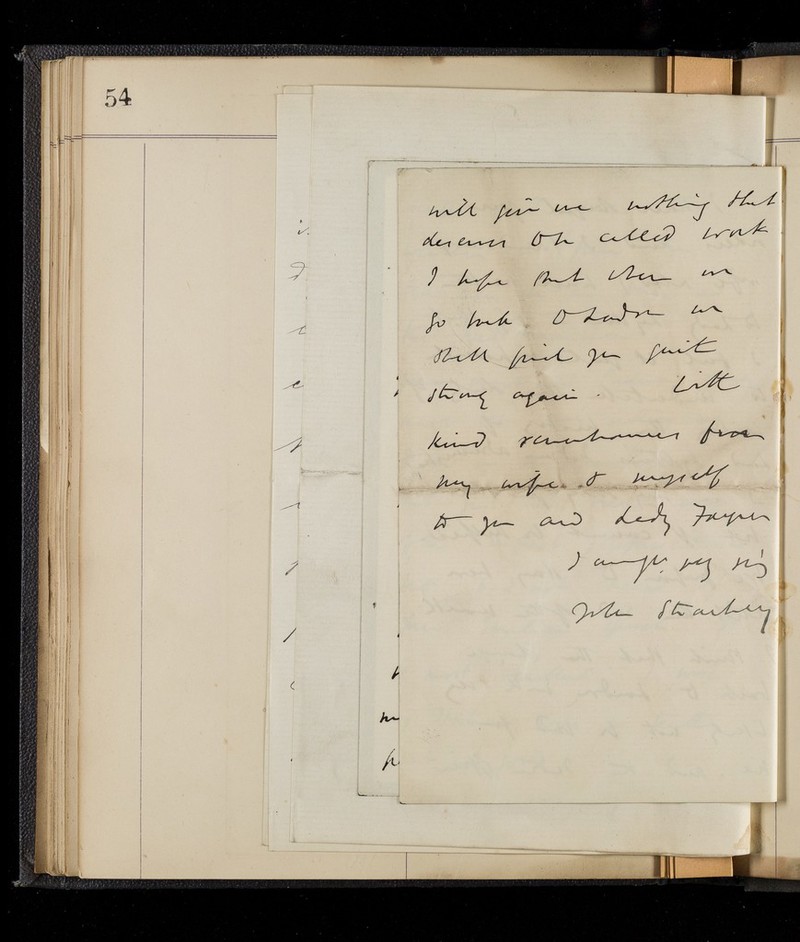 54
will give me nothing that
deserves to be called work
I hope that when we
go back to London we
shall find you quite
strong again. With
kind remembrances from
my wife & myself
to you and Lady Fayrer
I am yrs. very sin
John Strachey